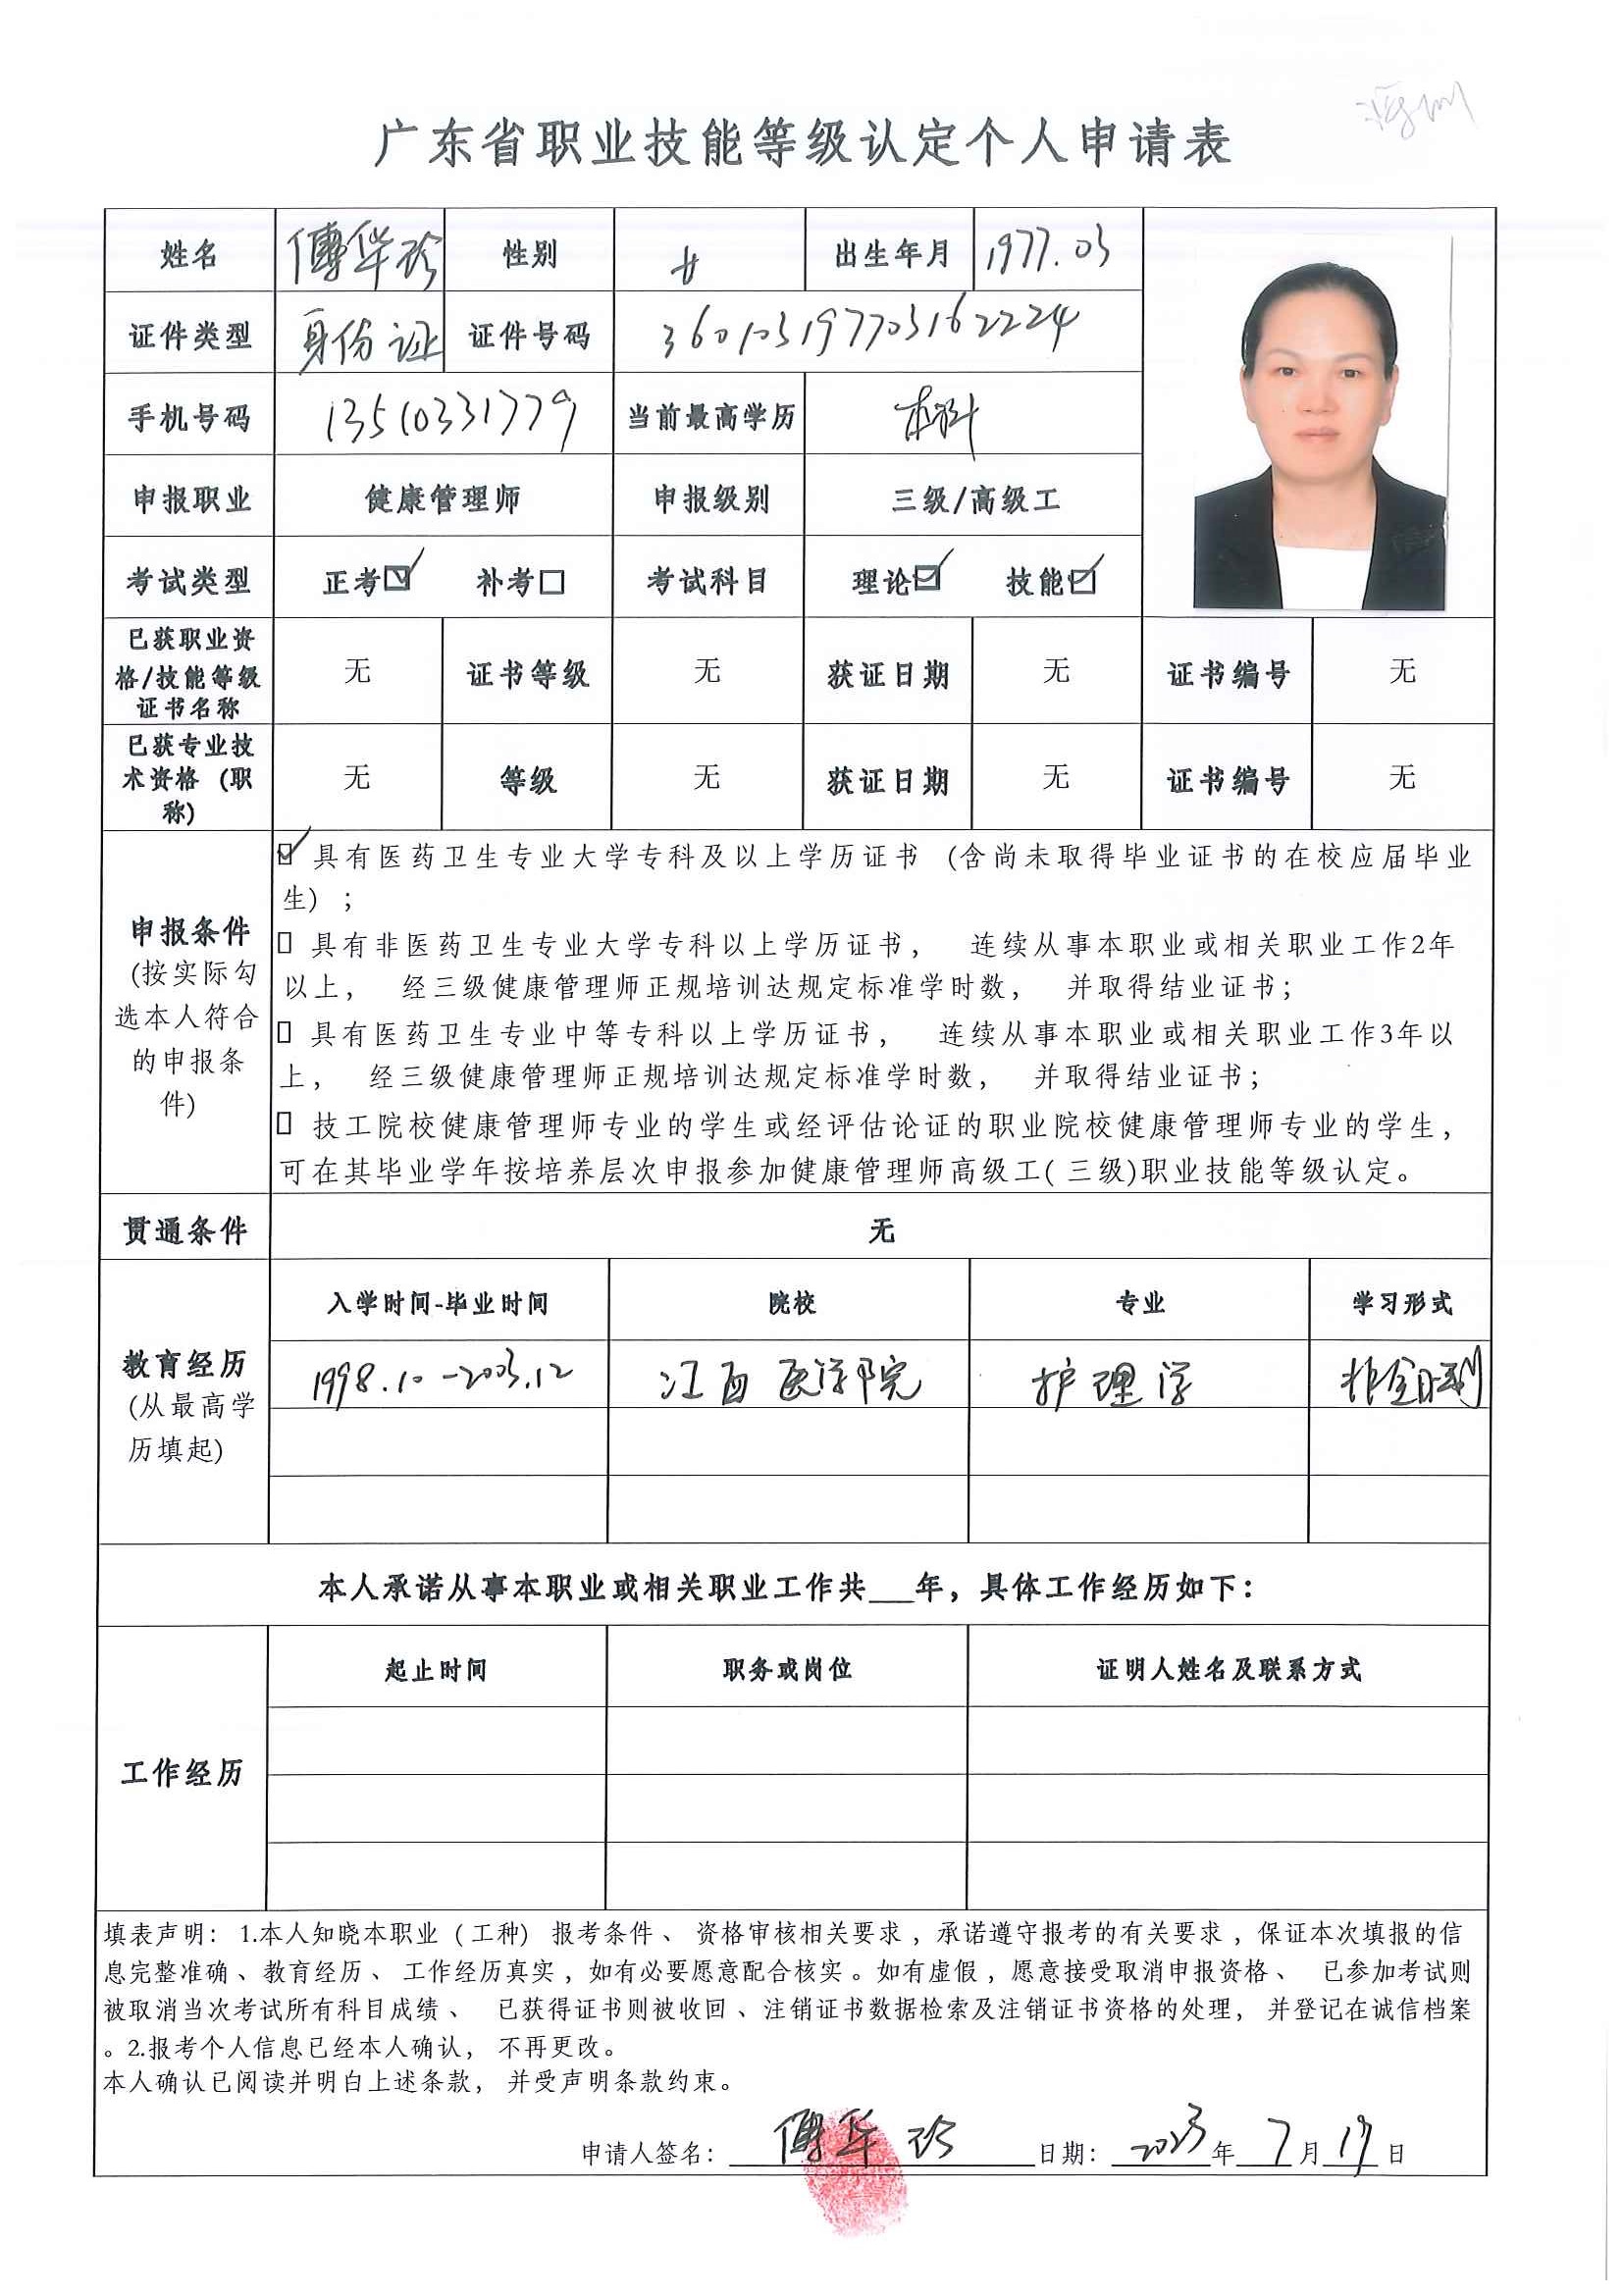 广东省职业技能等级认定个人申请表
姓名 傅华珍 性别 女 出生年月 1977.03
证件类型 身份证 证件号码 360103197703162224
手机号码 13510331779 当前最高学历 本科
申报职业 健康管理师 申报级别 三级/高级工
考试类型 正考☑ 补考☐ 考试科目 理论☑ 技能☑
已获职业资格/技能等级证书名称 无 证书等级 无 获证日期 无 证书编号 无
已获专业技术资格 (职称) 无 等级 无 获证日期 无 证书编号 无
申报条件
(按实际勾选本人符合的申报条件)
☑ 具有医药卫生专业大学专科及以上学历证书 (含尚未取得毕业证书的在校应届毕业
生) ;
☐ 具有非医药卫生专业大学专科以上学历证书, 连续从事本职业或相关职业工作2年
以上, 经三级健康管理师正规培训达规定标准学时数, 并取得结业证书;
☐ 具有医药卫生专业中等专科以上学历证书, 连续从事本职业或相关职业工作3年以
上, 经三级健康管理师正规培训达规定标准学时数, 并取得结业证书;
☐ 技工院校健康管理师专业的学生或经评估论证的职业院校健康管理师专业的学生,
可在其毕业学年按培养层次申报参加健康管理师高级工(三级)职业技能等级认定。
贯通条件 无
教育经历
(从最高学历填起)
入学时间-毕业时间 院校 专业 学习形式
1998.10-2003.12 江西医学院 护理学 非全日制
本人承诺从事本职业或相关职业工作共___年，具体工作经历如下：
工作经历
起止时间 职务或岗位 证明人姓名及联系方式
填表声明: 1.本人知晓本职业 (工种) 报考条件、资格审核相关要求, 承诺遵守报考的有关要求, 保证本次填报的信
息完整准确、教育经历、工作经历真实, 如有必要愿意配合核实。如有虚假, 愿意接受取消申报资格、 已参加考试则
被取消当次考试所有科目成绩、 已获得证书则被收回、注销证书数据检索及注销证书资格的处理, 并登记在诚信档案
。2.报考个人信息已经本人确认, 不再更改。
本人确认已阅读并明白上述条款, 并受声明条款约束。
申请人签名: 傅华珍 日期: 2023年7月19日